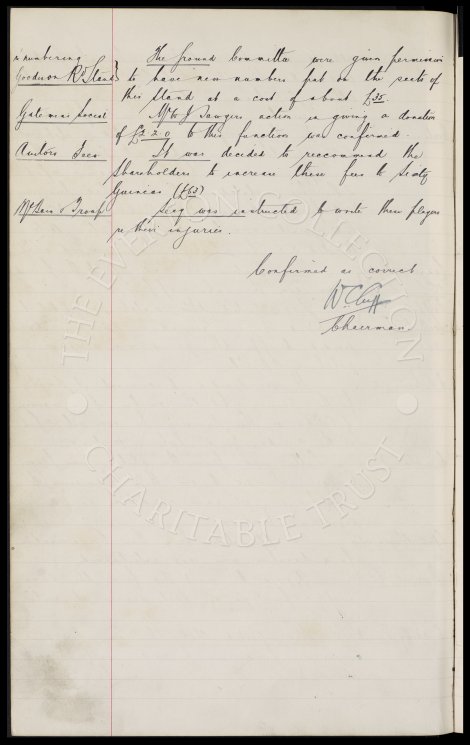 numbering
Goodison Rd Stand
The Ground Committee were given permission
to have new numbers put on the seats of
this Stand at a cost of about £35.
Gatemens Social
Mr W J Sawyers action in giving a donation
of £2 2 0 to this function was confirmed.
Auditors Fees
It was decided to reccommend the
Shareholders to increase these fees to Sixty
Guineas (£63)
McBain & Troup
Secy was instructed to write these players
re their injuries.
Confirmed as correct
W C Cuff
Chairman
THE EVERTON COLLECTION
CHARITABLE TRUST